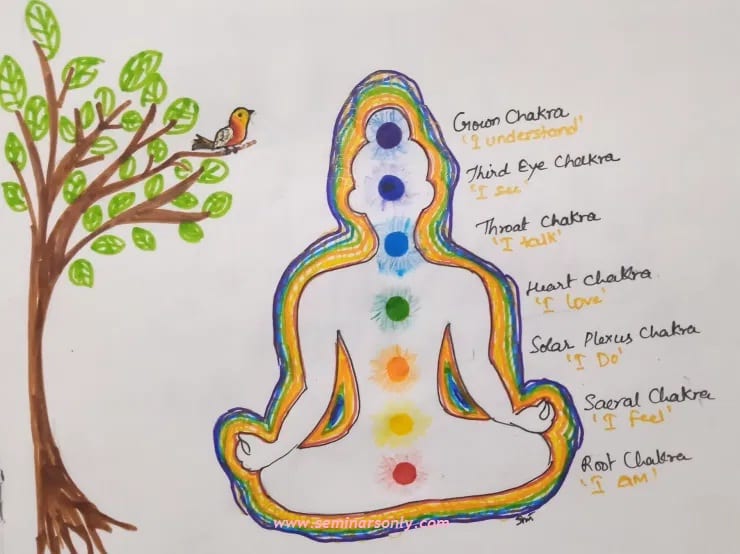 Crown Chakra
'I understand'
Third Eye Chakra
'I see'
Throat Chakra
'I talk'
Heart Chakra
'I love'
Solar Plexus Chakra
'I Do'
Sacral Chakra
'I feel'
Root Chakra
'I AM'
www.seminarsonly.com